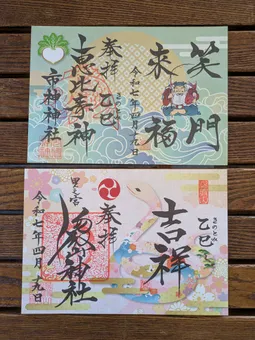 笑門
来福
令和七年四月九日
奉拝
乙巳
きのとみ
恵比寿神
市神神社
きのとみ
乙巳
吉祥
奉拝
神社
令和七年四月九日